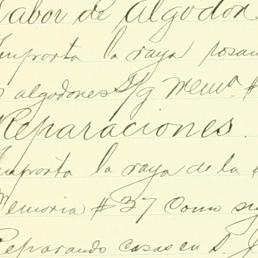 Labor de Algodon
Importa la raya
algodones S/g Mem.ª #
Reparaciones.
Importa la raya de la
Memoria #37 Como
Reparando casas en